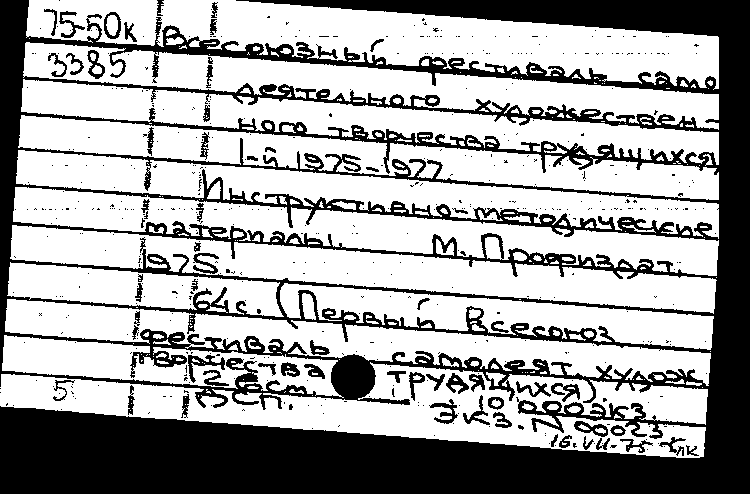 75-50к Всесоюзный фестиваль само
3385
деятельного художествен-
ного творчества трудящихся,
1-й. 1975-1977.
Инструктивно-методические
материалы. М., Профиздат,
1975.
64с. (Первый Всесоюз.
фестиваль самодеят. худож.
творчества трудящихся)
10 000экз.
5 ВСП. Экз. N 00023
16.VII-75